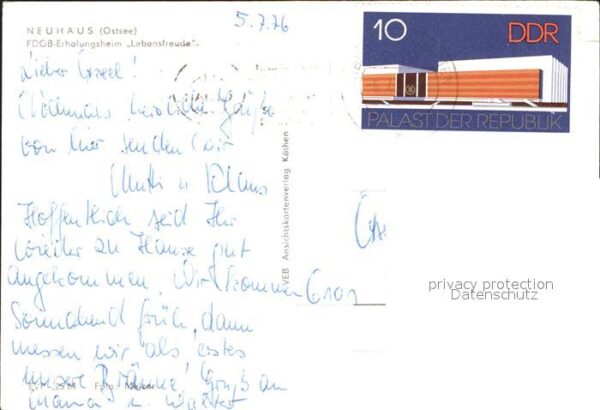 5.7.76
NEUHAUS (Ostsee)
FDGB-Erholungsheim „Lebensfreude“
10 DDR
PALAST DER REPUBLIK
Lieber
Nochmals herzliche Grüße
von hier senden wir
Mutti u. Klaus
Hoffentlich seid Ihr
wieder zu Hause gut
angekommen. Wir kommen
Sonnabend früh, dann
messen wir als erstes
unsere Bräune! Gruß an
Mama u. Walter
VEB Ansichtskartenverlag Köthen
privacy protection
Datenschutz
Foto